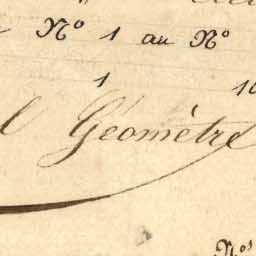 Nº 1 au Nº
1 10
l Géomètre
Nos